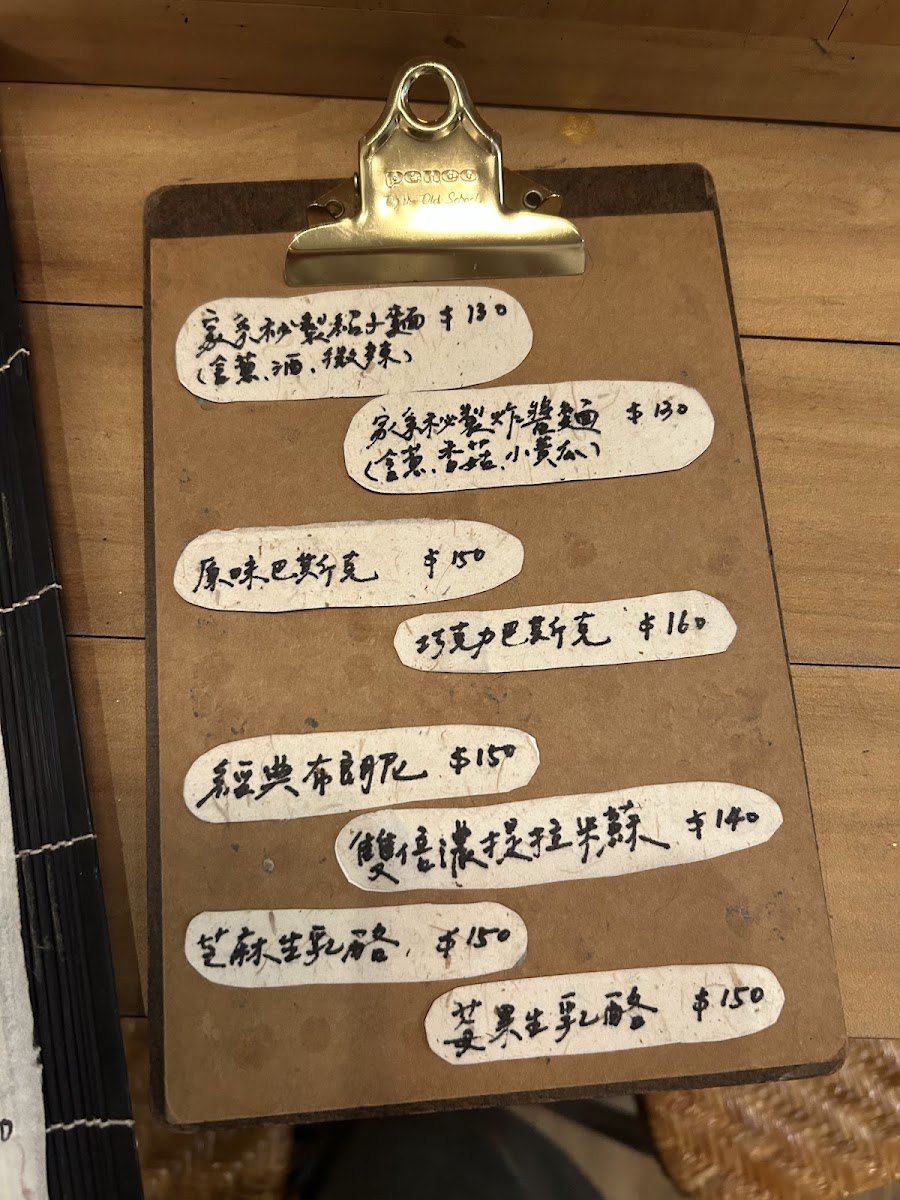 PENCO
By the Old School
家系秘製紹子麵 $130
(含蔥、酒、微辣)
家系秘製炸醬麵 $130
(含蔥、香菇、小黃瓜)
原味巴斯克 $150
巧克力巴斯克 $160
經典布朗尼 $150
雙倍濃提拉米蘇 $140
芝麻生乳酪 $150
芒果生乳酪 $150